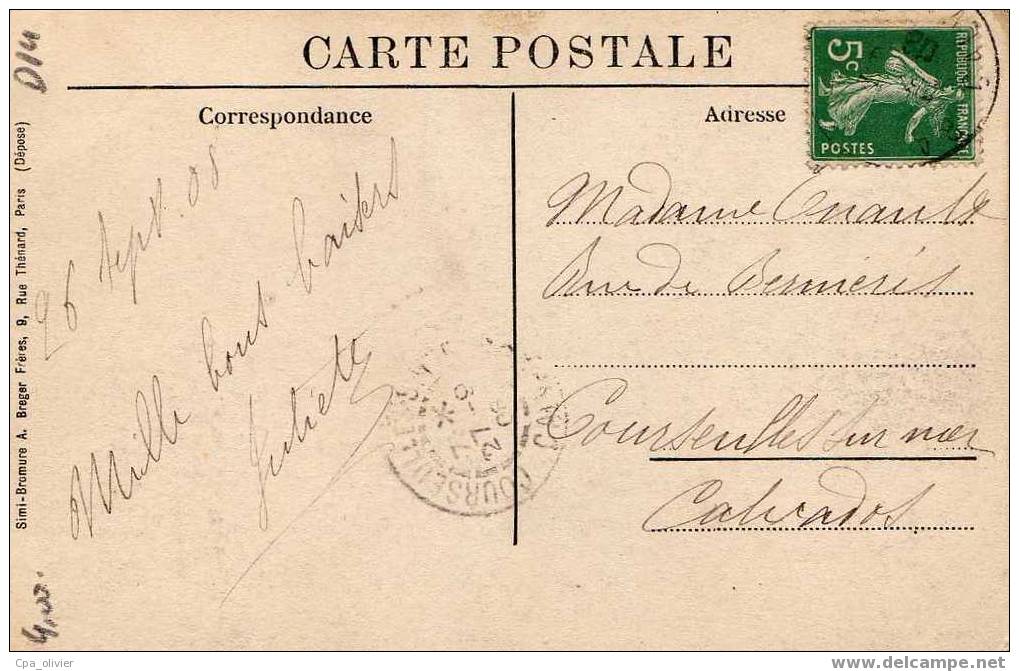 CARTE POSTALE
Correspondance
Adresse
REPUBLIQUE FRANÇAISE
5c
POSTES
D14
26 sept. 08
Mille bons baisers
Juliette
Madame
Rue de Bernières
Courseulles sur mer
Calvados
COURSEULLES
CALVADOS
Simi-Bromure A. Breger Frères, 9, Rue Thénard, Paris (Dépose)
4,00.
Cpa_olivier
http://www.delcampe.net